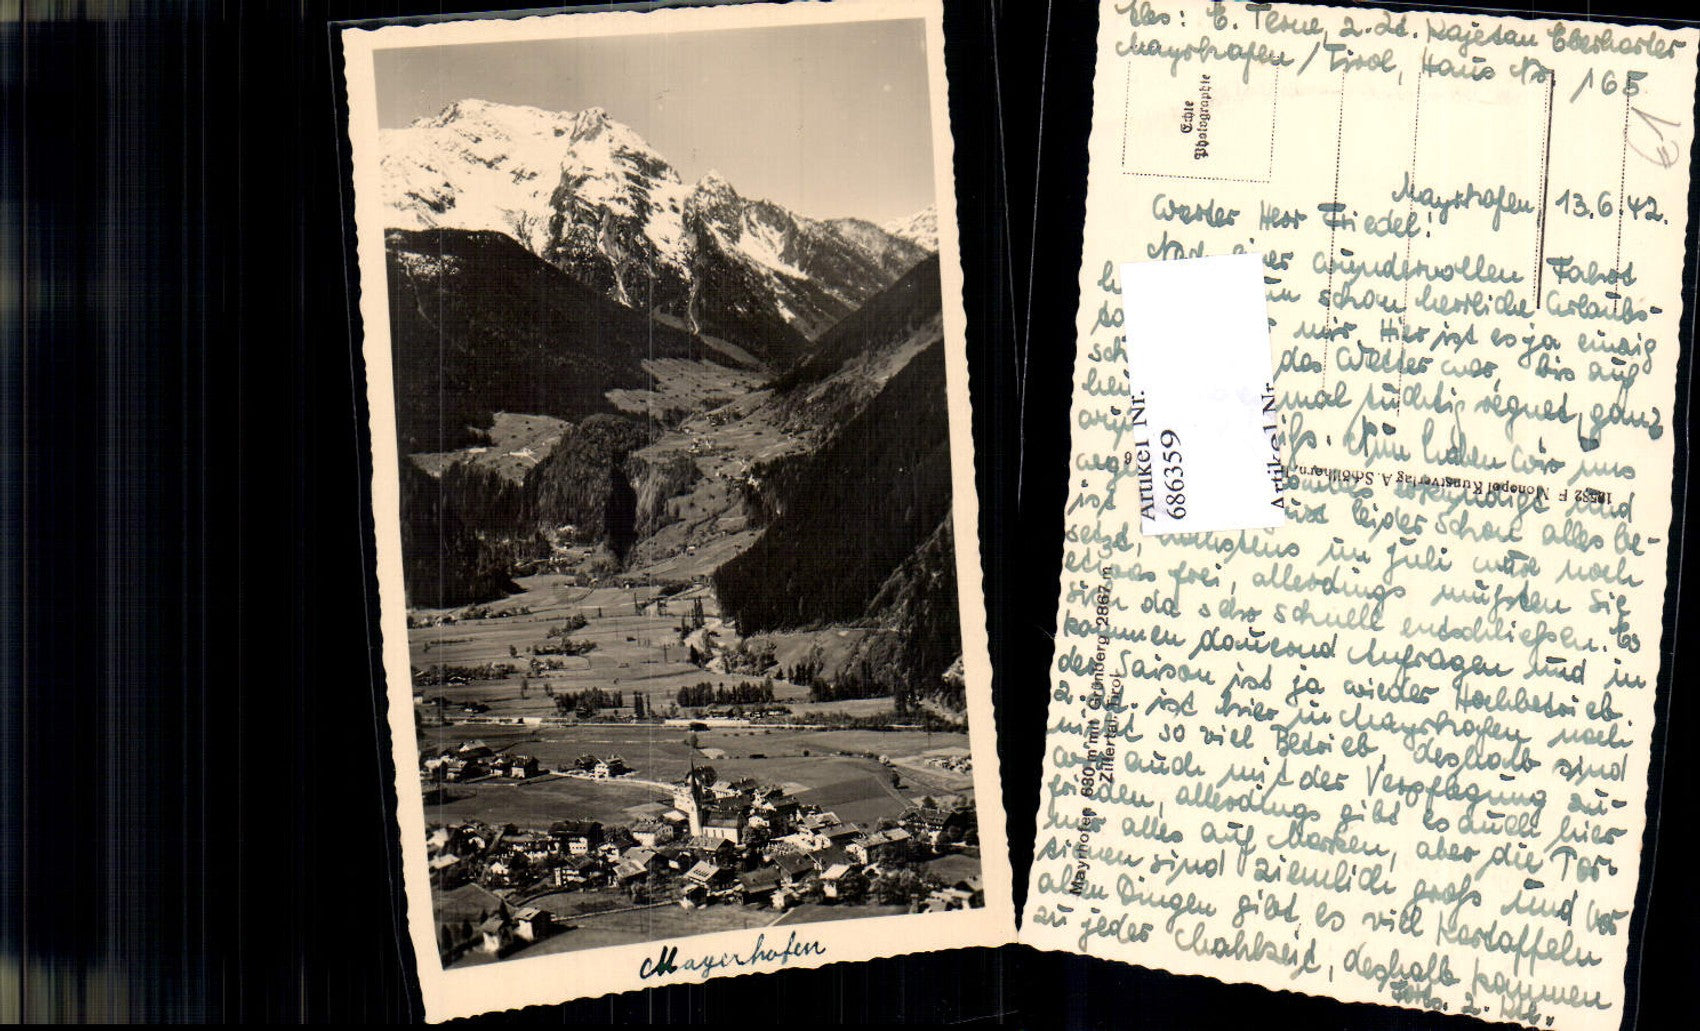 Mayerhofen
Abs: E. Terne, z. Zt. Kajetan Eberharter
Mayrhofen / Tirol, Haus Nr. 165
Echte
Photographie
€1
Mayrhofen 13.6.42.
Werter Herr Friedel!
Nach einer wundervollen Fahrt
schon herrliche Urlaubs-
mir. Hier ist es ja einzig
das Wetter war, bis auf
mal tüchtig regnet, ganz
Nun haben wir uns
erkundigt und
ist leider schon alles be-
setzt, höchstens im Juli wäre noch
etwas frei, allerdings müßten Sie
sich da sehr schnell entschließen. Es
kommen dauernd Anfragen und in
der Saison ist ja wieder Hochbetrieb.
z. Zt. ist hier in Mayrhofen noch
nicht so viel Betrieb, deshalb sind
wir auch mit der Verpflegung zu-
frieden, allerdings gibt es auch hier
nur alles auf Marken, aber die Por-
tionen sind ziemlich groß und vor
allen Dingen gibt es viel Kartoffeln
zu jeder Mahlzeit, deshalb kommen
Forts. 2. Kte.
Artikel Nr.
686359
Artikel Nr.
18532 F Monopol Kunstverlag A. Schöllhorn,
Mayrhofen 630 m mit Grünberg 2867 m
Zillertal, Tirol